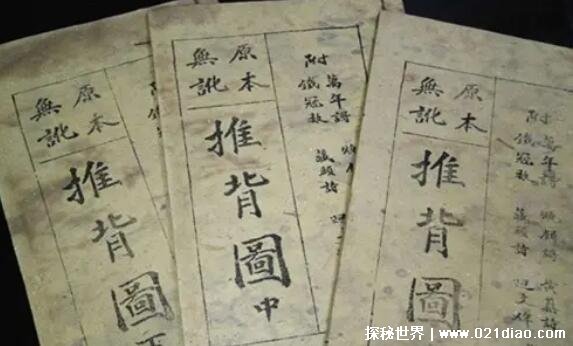 原本
無訛
推背圖
原本
無訛
推背圖中
附
萬年
鐵冠
藏頭詩
原本
無訛
推背圖
附
萬年
鐵冠
藏頭詩
探秘世界 | www.021diao.com